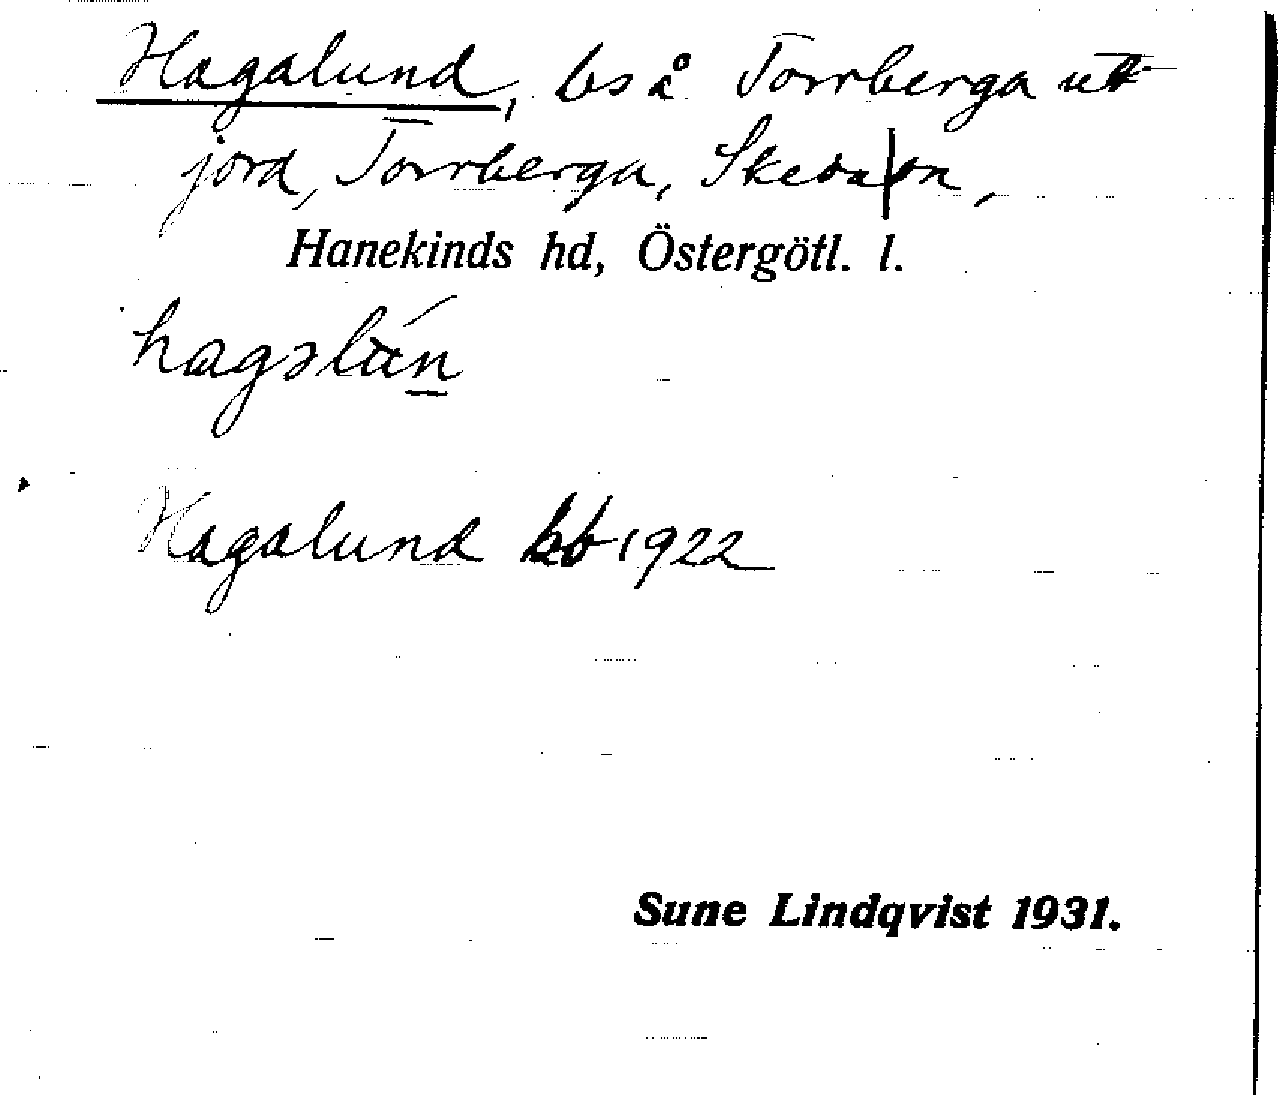 Hagalund, bs å Torrberga ut
jord, Torrberga, Skeda sn,
Hanekinds hd, Östergötl. l.
hagəlún
Hagalund kb 1922
Sune Lindqvist 1931.